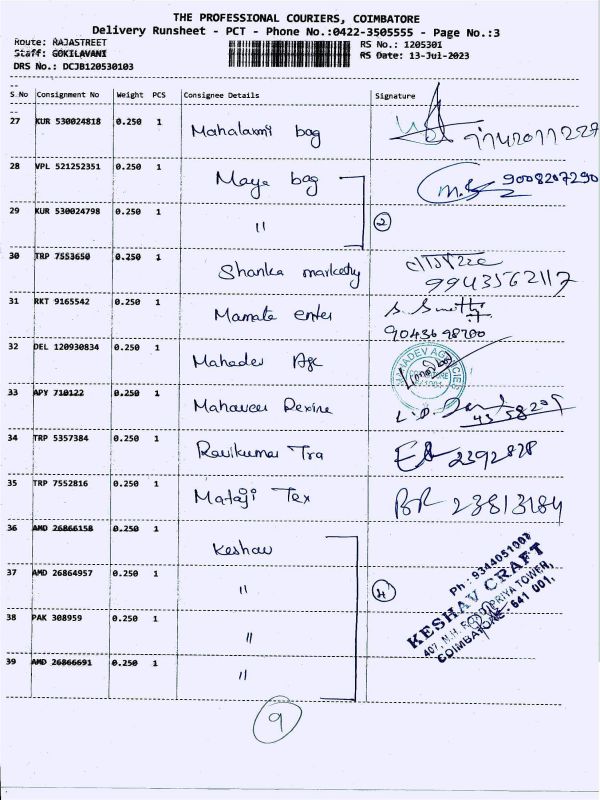 THE PROFESSIONAL COURIERS, COIMBATORE
Delivery Runsheet - PCT - Phone No.:0422-3505555 - Page No.:3
Route: RAJASTREET RS No.: 1205301
Staff: GOKILAVANI RS Date: 13-Jul-2023
DRS No.: DCJB120530103
S No Consignment No Weight PCS Consignee Details Signature
27 KUR 530024818 0.250 1 Mahalaxmi bag
28 VPL 521252351 0.250 1 Maya bag 9008207290
29 KUR 530024798 0.250 1 " 2
30 TRP 7553650 0.250 1 Shanka
9943562117
31 RKT 9165542 0.250 1 Mamata enter
32 DEL 120930834 0.250 1 Mahadev Age
MAHADEV AGENCIES
33 APY 710122 0.250 1 Mahaveer Rexine
34 TRP 5357384 0.250 1 Ravikumar Tra 2392828
35 TRP 7552816 0.250 1 Mataji Tex BR 23813184
36 AMD 26866158 0.250 1 Keshav
37 AMD 26864957 0.250 1 " 4
38 PAK 308959 0.250 1 "
39 AMD 26866691 0.250 1 "
KESHAV CRAFT
COIMBATORE - 641 001.
9